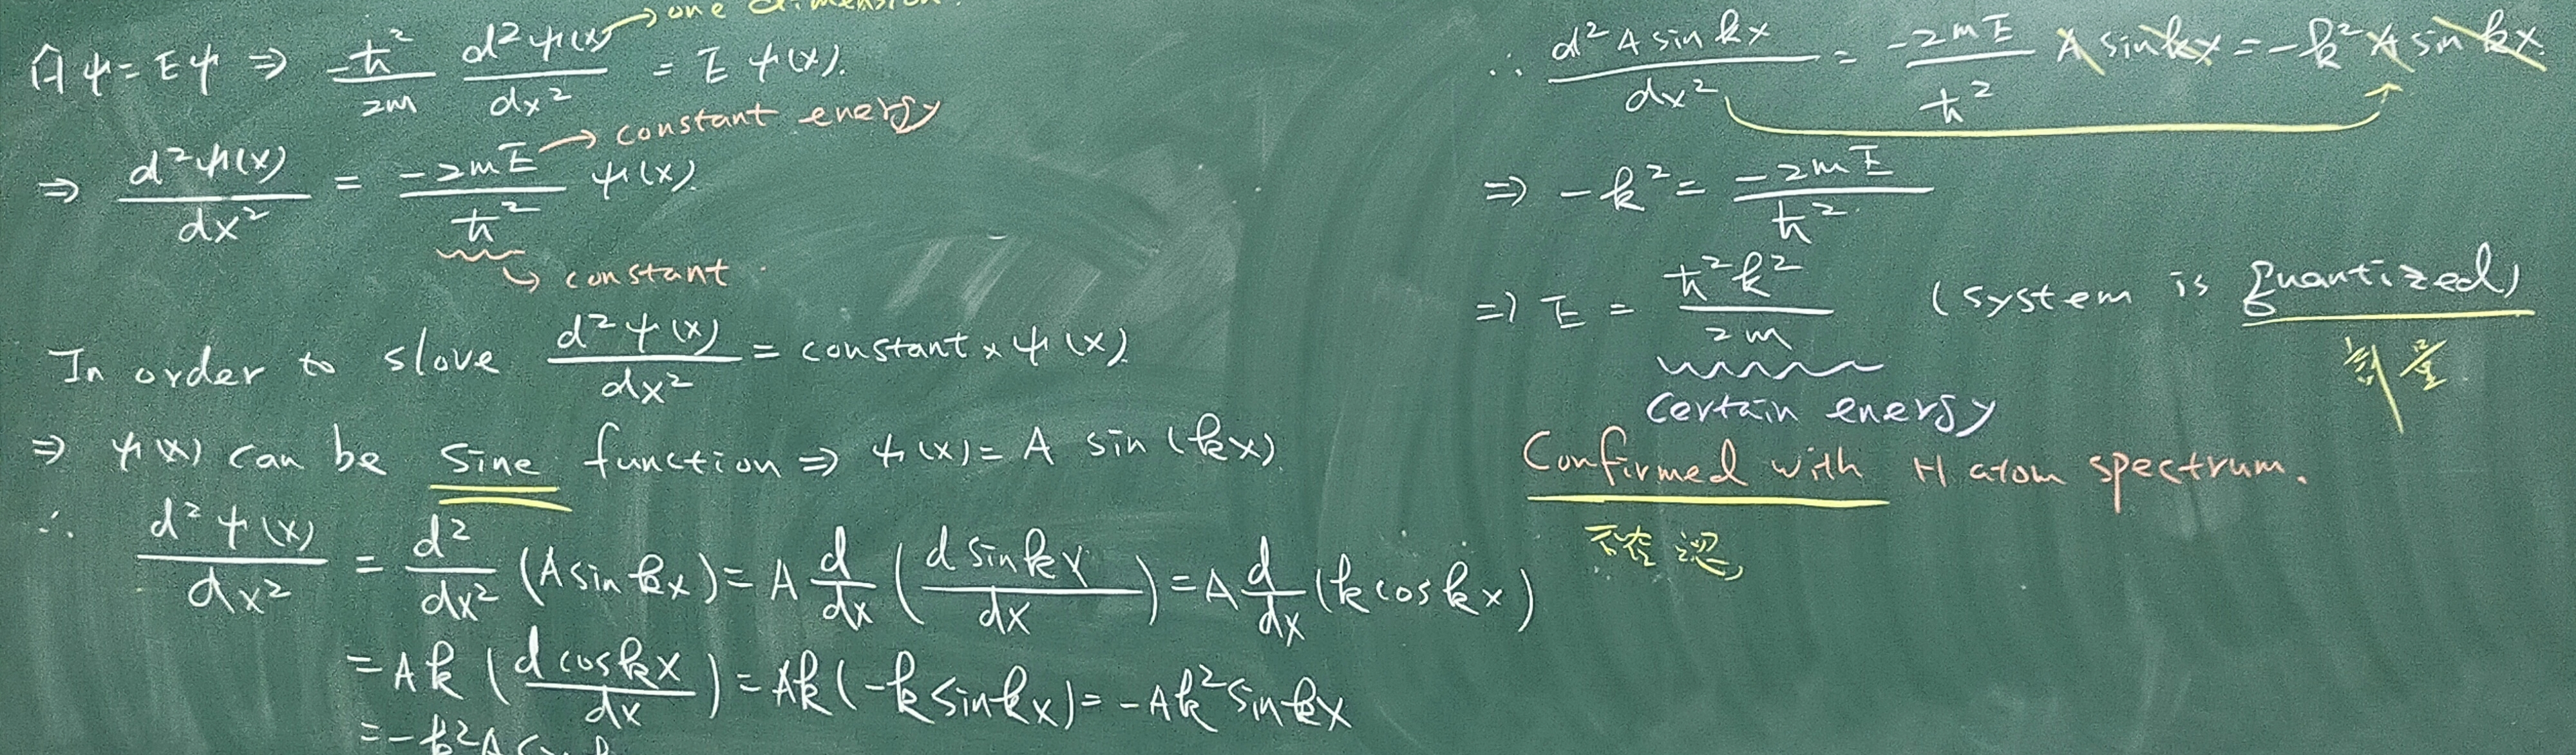 → one dimension.
Ĥψ = Eψ ⇒ -ħ²/2m d²ψ(x)/dx² = E ψ(x).
⇒ d²ψ(x)/dx² = -2mE/ħ² ψ(x). → constant energy
↳ constant
In order to slove d²ψ(x)/dx² = constant × ψ(x).
⇒ ψ(x) can be sine function ⇒ ψ(x) = A sin(kx).
∴ d²ψ(x)/dx² = d²/dx² (A sin kx) = A d/dx (d sin kx/dx) = A d/dx (k cos kx)
= Ak (d cos kx/dx) = Ak(-k sin kx) = -Ak² sin kx
= -k²A
∴ d² A sin kx/dx² = -2mE/ħ² A sin kx = -k² A sin kx
⇒ -k² = -2mE/ħ²
⇒ E = ħ²k²/2m (system is quantized)
certain energy
Confirmed with H atom spectrum.
確認